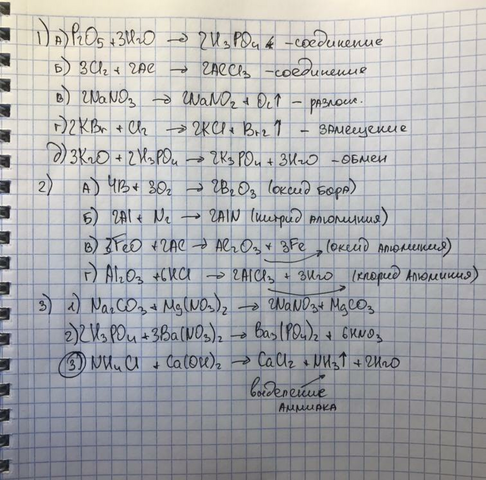 1) А) P2O5 + 3H2O → 2H3PO4 - соединение
Б) 3Cl2 + 2Al → 2AlCl3 - соединение
В) 2NaNO3 → 2NaNO2 + O2↑ - разлож.
Г) 2KBr + Cl2 → 2KCl + Br2↑ - замещение
Д) 3K2O + 2H3PO4 → 2K3PO4 + 3H2O - обмен
2) А) 4B + 3O2 → 2B2O3 (оксид бора)
Б) 2Al + N2 → 2AlN (нитрид алюминия)
В) 3FeO + 2Al → Al2O3 + 3Fe (оксид алюминия)
Г) Al2O3 + 6HCl → 2AlCl3 + 3H2O (хлорид алюминия)
3) 1) Na2CO3 + Mg(NO3)2 → 2NaNO3 + MgCO3
2) 2H3PO4 + 3Ba(NO3)2 → Ba3(PO4)2 + 6HNO3
3) NH4Cl + Ca(OH)2 → CaCl2 + NH3↑ + 2H2O
выделение
аммиака